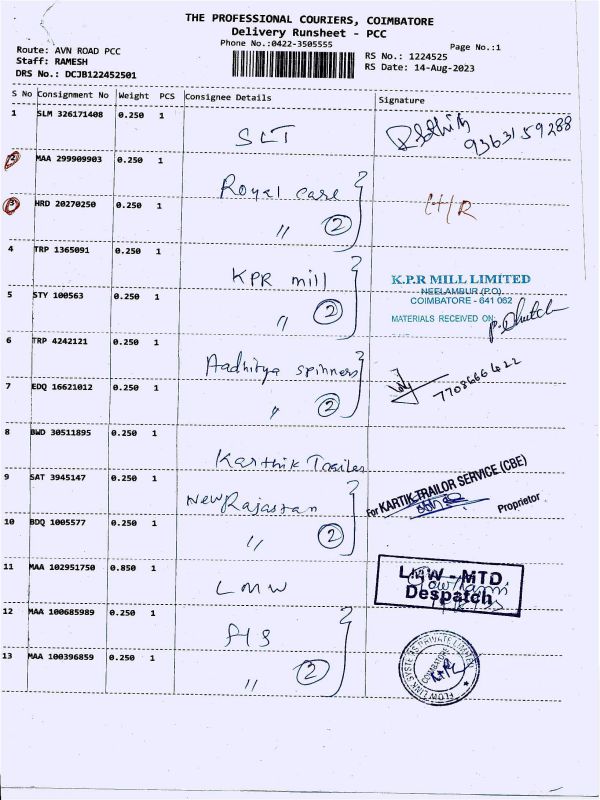 THE PROFESSIONAL COURIERS, COIMBATORE
Delivery Runsheet - PCC
Phone No.:0422-3505555
Page No.:1
Route: AVN ROAD PCC
RS No.: 1224525
Staff: RAMESH
RS Date: 14-Aug-2023
DRS No.: DCJB122452501
S No Consignment No Weight PCS Consignee Details Signature
1 SLM 326171408 0.250 1
SLT
9363159288
2 MAA 299909903 0.250 1
Royal care
3 HRD 20270250 0.250 1
" 2
4 TRP 1365091 0.250 1
KPR mill
K.P.R MILL LIMITED
NEELAMBUR (P.O)
COIMBATORE - 641 062
5 STY 100563 0.250 1
" 2
MATERIALS RECEIVED ON:
6 TRP 4242121 0.250 1
Aadhitya spinners
7708666422
7 EDQ 16621012 0.250 1
" 2
8 BWD 30511895 0.250 1
Karthik Trailer
For KARTIK-TRAILOR SERVICE (CBE)
Proprietor
9 SAT 3945147 0.250 1
New Rajastan
10 BDQ 1005577 0.250 1
" 2
11 MAA 102951750 0.850 1
LMW
LMW - MTD
Despatch
12 MAA 100685989 0.250 1
13 MAA 100396859 0.250 1
" 2
FLOW LINK SYSTEMS PRIVATE LIMITED
COIMBATORE